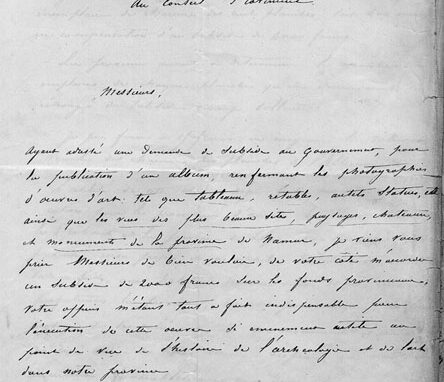 au Conseil Provincial
Messieurs,
Ayant adressé une demande de Subside au Gouvernement, pour
la publication d'un album, renfermant les photographies
d'œuvres d'art tels que tableaux, rétables, autels Statues, etc
ainsi que les vues des plus beaux sites, paysages, chateaux,
et monument de la province de Namur, je viens vous
prier Messieurs de bien vouloir, de votre côté m'accorder
un Subside de francs Sur les fonds provinciaux,
votre appui m'étant tout a fait indispensable pour
l'exécution de cette œuvre Si eminement utile au
point de vue de l'histoire de l'archeologie et de l'art
dans notre province